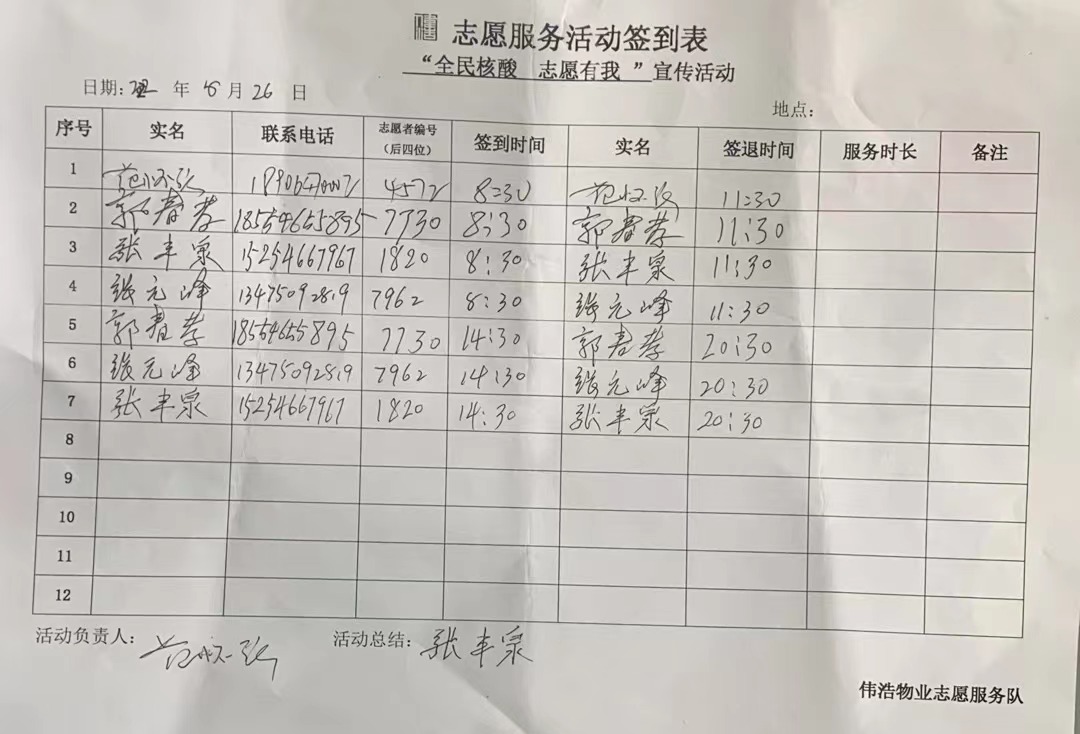 志愿服务活动签到表
“全民核酸 志愿有我 ”宣传活动
日期: 年 月 26 日
地点:
序号 实名 联系电话 志愿者编号(后四位) 签到时间 实名 签退时间 服务时长 备注
1 4572 8:30 11:30
2 郭春孝 18554655895 7730 8:30 郭春孝 11:30
3 张丰泉 15254667967 1820 8:30 张丰泉 11:30
4 张元峰 13475092819 7962 8:30 张元峰 11:30
5 郭春孝 18554655895 7730 14:30 郭春孝 20:30
6 张元峰 13475092819 7962 14:30 张元峰 20:30
7 张丰泉 15254667967 1820 14:30 张丰泉 20:30
8
9
10
11
12
活动负责人: 活动总结: 张丰泉
伟浩物业志愿服务队